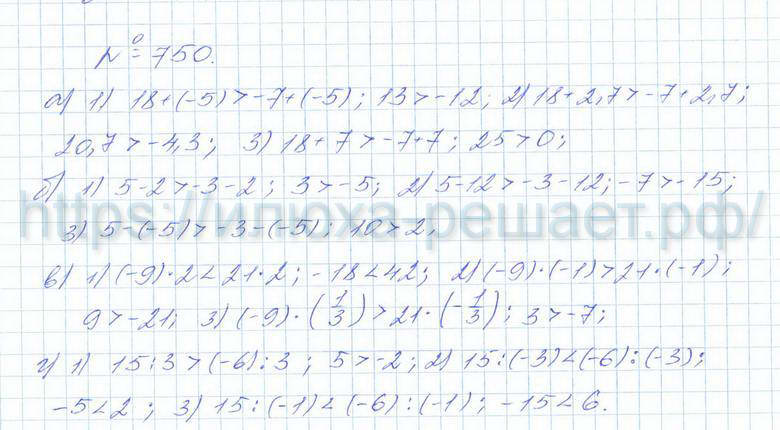 № 750.
а) 1) 18+(-5)>-7+(-5); 13>-12; 2) 18+2,7>-7+2,7;
20,7>-4,3; 3) 18+7>-7+7; 25>0;
б) 1) 5-2>-3-2; 3>-5; 2) 5-12>-3-12; -7>-15;
https://илюха-решает.рф/
3) 5-(-5)>-3-(-5); 10>2;
в) 1) (-9)·2<21·2; -18<42; 2) (-9)·(-1)>21·(-1);
9>-21; 3) (-9)·(1/3)>21·(-1/3); 3>-7;
г) 1) 15:3>(-6):3; 5>-2; 2) 15:(-3)<(-6):(-3);
-5<2; 3) 15:(-1)<(-6):(-1); -15<6.